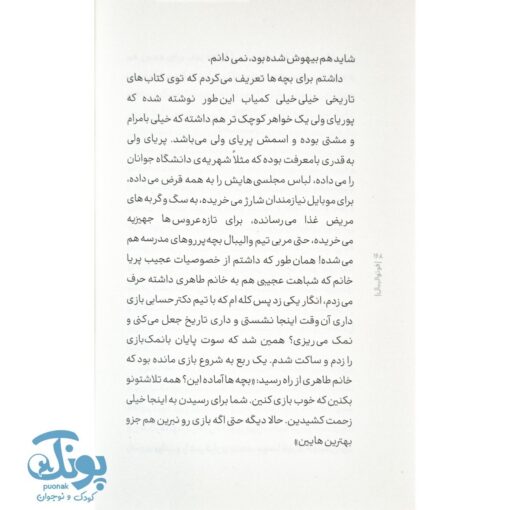 شاید هم بیهوش شده بود، نمی دانم.
داشتم برای بچه ها تعریف می کردم که توی کتاب های
تاریخی خیلی خیلی کمیاب این طور نوشته شده که
پوریای ولی یک خواهر کوچک تر هم داشته که خیلی بامرام
و مشتی بوده و اسمش پریای ولی می باشد. پریای ولی
به قدری بامعرفت بوده که مثلاً شهریه ی دانشگاه جوانان
را می داده، لباس مجلسی هایش را به همه قرض می داده،
برای موبایل نیازمندان شارژ می خریده، به سگ و گربه های
مریض غذا می رسانده، برای تازه عروس ها جهیزیه
می خریده، حتی مربی تیم والیبال بچه پرروهای مدرسه هم
می شده! همان طور که داشتم از خصوصیات عجیب پریا
خانم که شباهت عجیبی هم به خانم طاهری داشته حرف
می زدم، انگار یکی زد پس کله ام که با تیم دکتر حسابی بازی
داری آن وقت اینجا نشستی و داری تاریخ جعل می کنی و
نمک می ریزی؟ همین شد که سوت پایان بانمک بازی
را زدم و ساکت شدم. یک ربع به شروع بازی مانده بود که
خانم طاهری از راه رسید: «بچه ها آماده این؟ همه تلاشتونو
بکنین که خوب بازی کنین. شما برای رسیدن به اینجا خیلی
زحمت کشیدین. حالا دیگه حتی اگه بازی رو نبرین هم جزو
بهترین هایین»
پونک
puonak
کودک و نوجوان